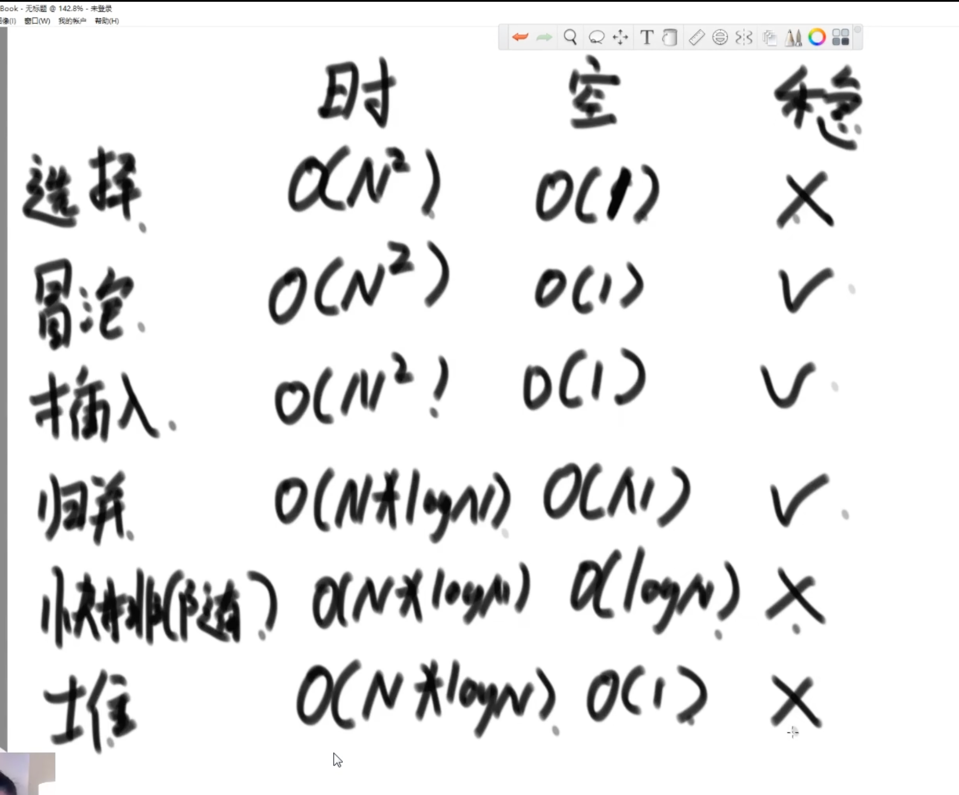 Book - 无标题 @ 142.8% - 未登录
像(I) 窗口(W) 我的帐户 帮助(H)
时 空 稳
选择 O(N²) O(1) X
冒泡 O(N²) O(1) √
插入 O(N²) O(1) √
归并 O(N*logN) O(N) √
快排(随) O(N*logN) O(logN) X
堆 O(N*logN) O(1) X